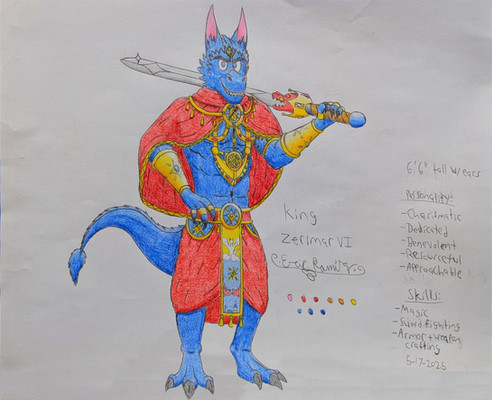 King
Zerlmar VI
6'6" tall w/ears
Personality:
- Charismatic
- Dedicated
- Benevolent
- Resourceful
- Approachable
Skills:
- Magic
- Sword fighting
- Armor + weapon
crafting
5-17-2025